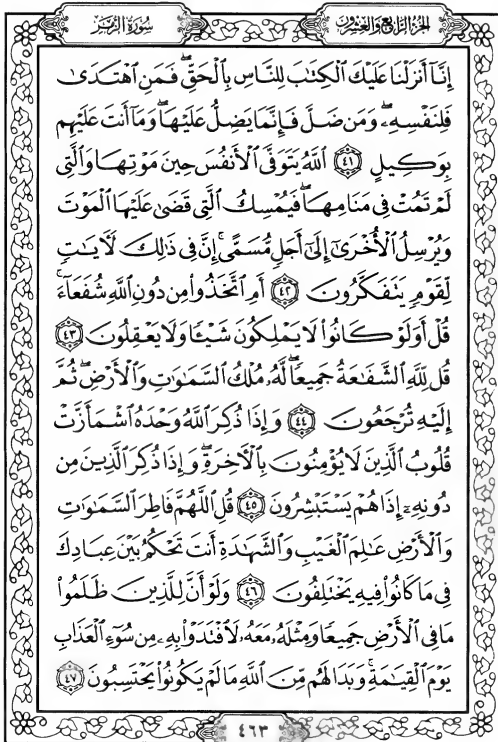 سورة الزمر
الجزء الرابع والعشرون
إِنَّآ أَنزَلْنَا عَلَيْكَ ٱلْكِتَٰبَ لِلنَّاسِ بِٱلْحَقِّ ۖ فَمَنِ ٱهْتَدَىٰ
فَلِنَفْسِهِۦ ۖ وَمَن ضَلَّ فَإِنَّمَا يَضِلُّ عَلَيْهَا ۖ وَمَآ أَنتَ عَلَيْهِم
بِوَكِيلٍ ٤١ ٱللَّهُ يَتَوَفَّى ٱلْأَنفُسَ حِينَ مَوْتِهَا وَٱلَّتِى
لَمْ تَمُتْ فِى مَنَامِهَا ۖ فَيُمْسِكُ ٱلَّتِى قَضَىٰ عَلَيْهَا ٱلْمَوْتَ
وَيُرْسِلُ ٱلْأُخْرَىٰٓ إِلَىٰٓ أَجَلٍ مُّسَمًّى ۚ إِنَّ فِى ذَٰلِكَ لَءَايَٰتٍ
لِّقَوْمٍ يَتَفَكَّرُونَ ٤٢ أَمِ ٱتَّخَذُوا۟ مِن دُونِ ٱللَّهِ شُفَعَآءَ ۚ
قُلْ أَوَلَوْ كَانُوا۟ لَا يَمْلِكُونَ شَيْـًٔا وَلَا يَعْقِلُونَ ٤٣
قُل لِّلَّهِ ٱلشَّفَٰعَةُ جَمِيعًا ۖ لَّهُۥ مُلْكُ ٱلسَّمَٰوَٰتِ وَٱلْأَرْضِ ۖ ثُمَّ
إِلَيْهِ تُرْجَعُونَ ٤٤ وَإِذَا ذُكِرَ ٱللَّهُ وَحْدَهُ ٱشْمَأَزَّتْ
قُلُوبُ ٱلَّذِينَ لَا يُؤْمِنُونَ بِٱلْءَاخِرَةِ ۖ وَإِذَا ذُكِرَ ٱلَّذِينَ مِن
دُونِهِۦٓ إِذَا هُمْ يَسْتَبْشِرُونَ ٤٥ قُلِ ٱللَّهُمَّ فَاطِرَ ٱلسَّمَٰوَٰتِ
وَٱلْأَرْضِ عَٰلِمَ ٱلْغَيْبِ وَٱلشَّهَٰدَةِ أَنتَ تَحْكُمُ بَيْنَ عِبَادِكَ
فِى مَا كَانُوا۟ فِيهِ يَخْتَلِفُونَ ٤٦ وَلَوْ أَنَّ لِلَّذِينَ ظَلَمُوا۟
مَا فِى ٱلْأَرْضِ جَمِيعًا وَمِثْلَهُۥ مَعَهُۥ لَٱفْتَدَوْا۟ بِهِۦ مِن سُوٓءِ ٱلْعَذَابِ
يَوْمَ ٱلْقِيَٰمَةِ ۚ وَبَدَا لَهُم مِّنَ ٱللَّهِ مَا لَمْ يَكُونُوا۟ يَحْتَسِبُونَ ٤٧
٤٦٣